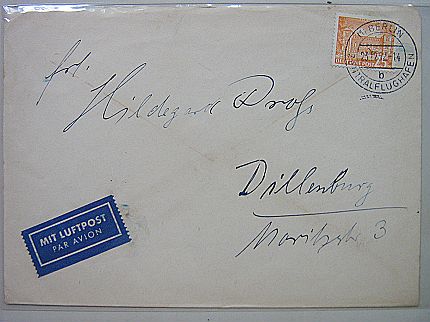 BERLIN
ZENTRALFLUGHAFEN
b
DEUTSCHE POST
Frl.
Hildegard Dross
Dillenburg
Moritzstr. 3
MIT LUFTPOST
PAR AVION